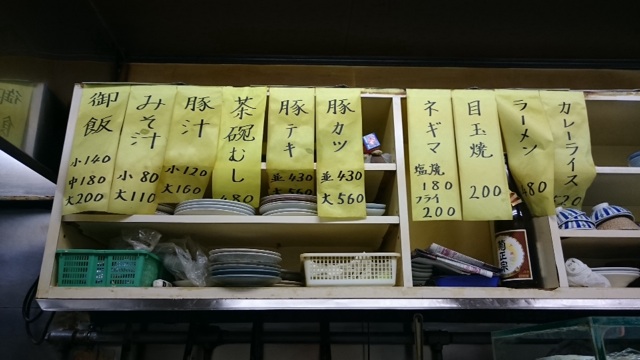 御飯
小140
中180
大200
みそ汁
小 80
大110
豚汁
小 120
大 160
茶碗むし
480
豚テキ
並430
大560
豚カツ
並430
大 560
ネギマ
塩焼
180
フライ
200
目玉焼
200
ラーメン
480
カレーライス
520